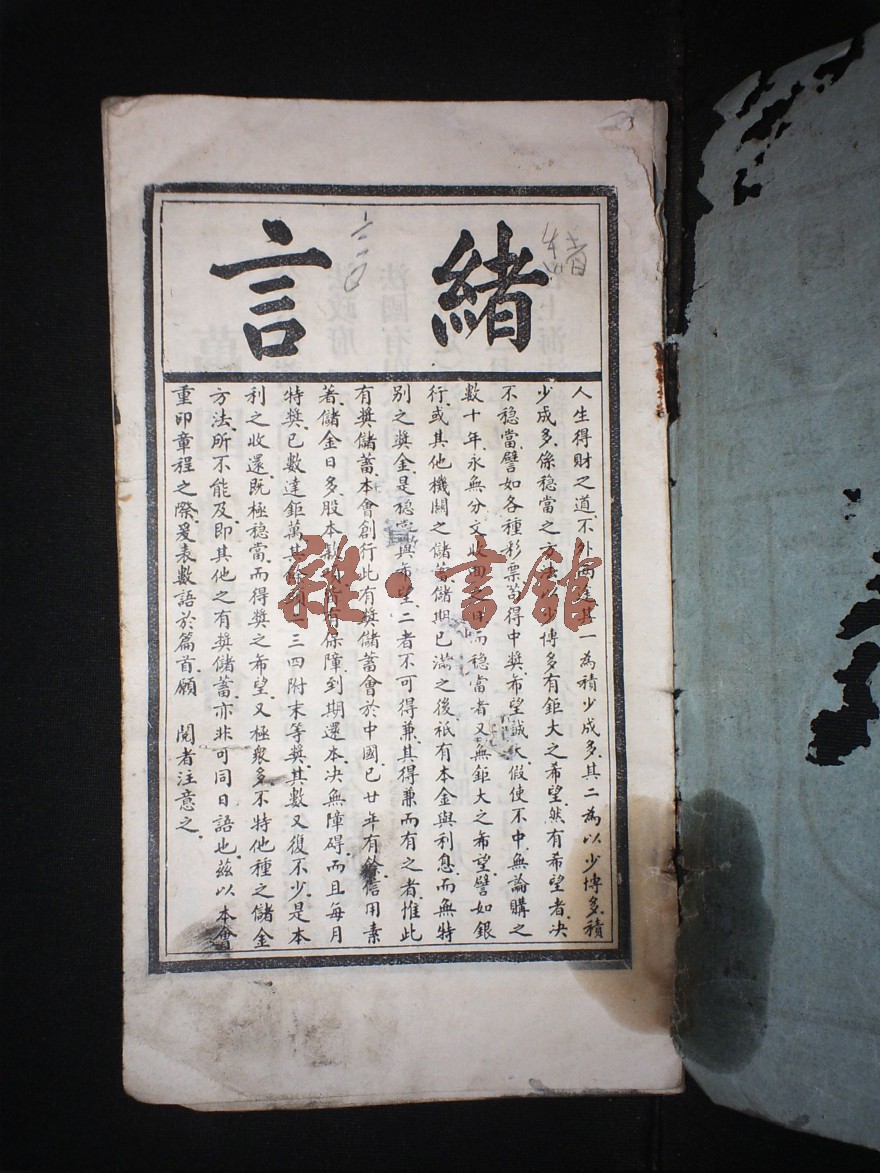 緒言
人生得財之道不外兩途其一為積少成多其二為以少博多積
少成多係穩當之方法以少博多有鉅大之希望然有希望者決
不穩當譬如各種彩票苟得中獎希望誠大假使不中無論購之
數十年永無分文收回之日而穩當者又無鉅大之希望譬如銀
行或其他機關之儲蓄儲期已滿之後祇有本金與利息而無特
別之獎金是穩當與希望二者不可得兼其得兼而有之者惟此
有獎儲蓄本會創行此有獎儲蓄會於中國已廿年有餘信用素
著儲金日多股本穀有保障到期還本決無障碍而且每月
特獎已數達鉅萬其二三四附末等獎其數又復不少是本
利之收還既極穩當而得獎之希望又極衆多不特他種之儲金
方法所不能及即其他之有獎儲蓄亦非可同日語也茲以本會
重印章程之際爰表數語於篇首願 閱者注意之
緒
言
雜·書館